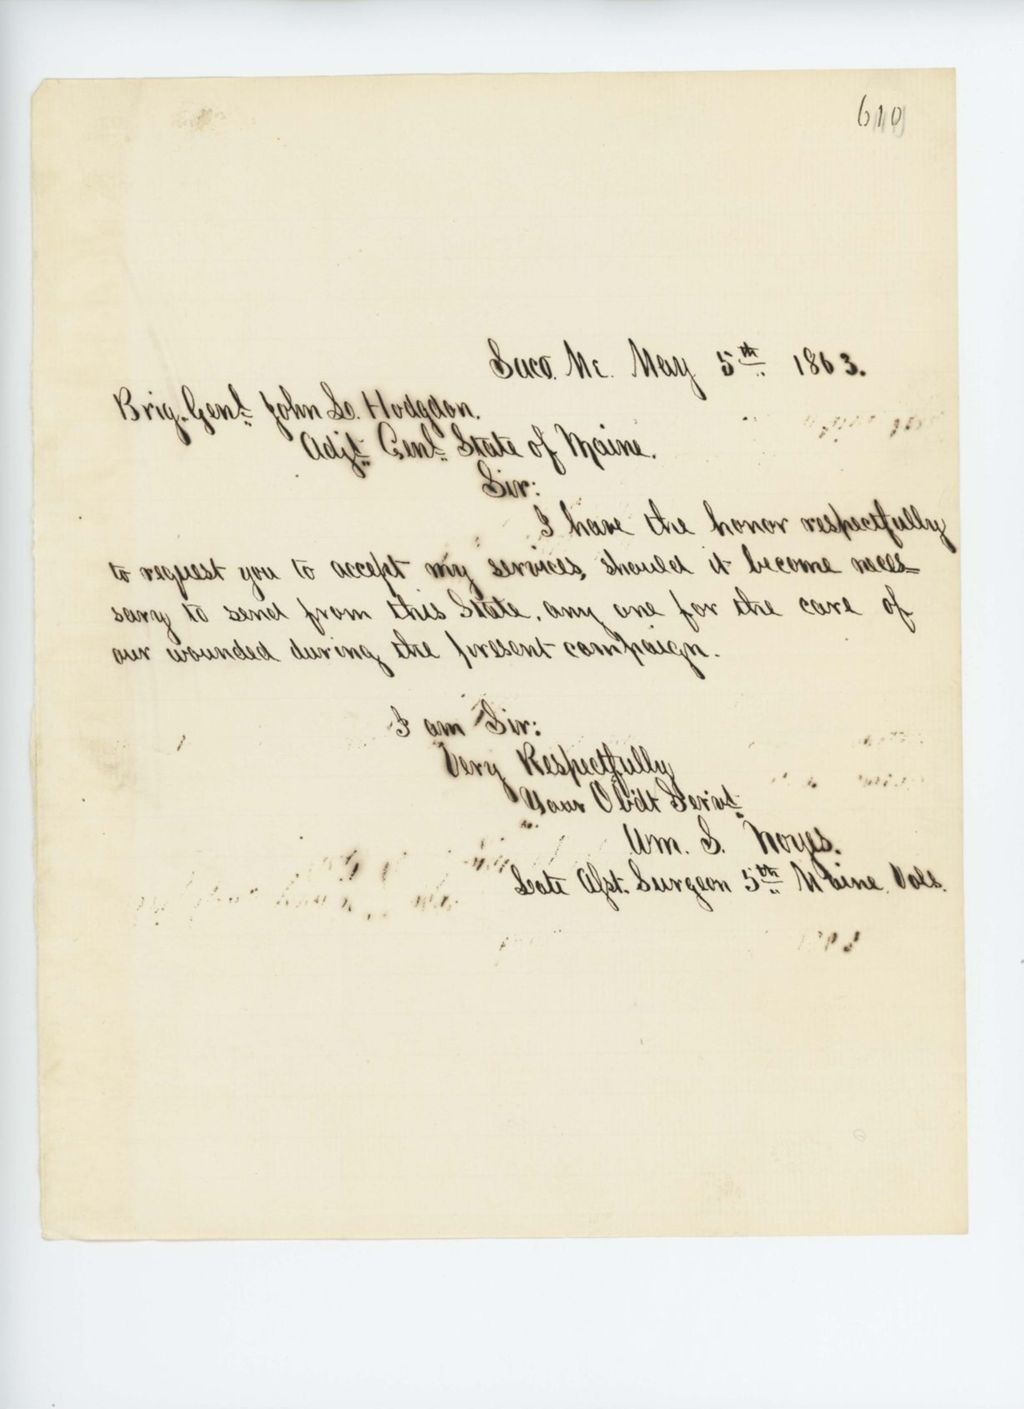 610
Saco. Me. May 5th. 1863.
Brig. Genl. John L. Hodgdon.
Adjt. Genl. State of Maine.
Sir:
I have the honor respectfully
to request you to accept my services, should it become neces=
sary to send from this State, any one for the care of
our wounded during the present campaign.
I am Sir:
Very Respectfully
Your Obdt Servt.
Wm. S. Noyes.
Late Asst. Surgeon 5th. Maine Vols.